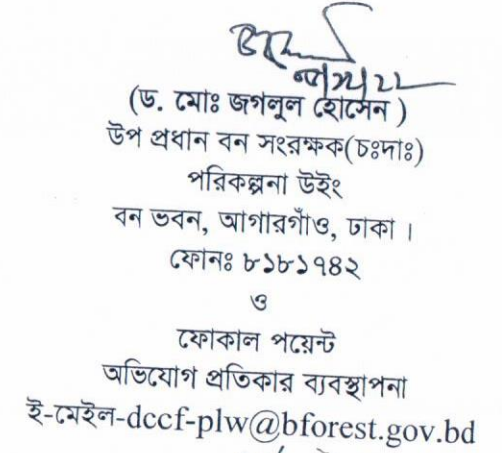 (ড. মোঃ জগলুল হোসেন )
উপ প্রধান বন সংরক্ষক(চঃদাঃ)
পরিকল্পনা উইং
বন ভবন, আগারগাঁও, ঢাকা ।
ফোনঃ ৮১৮১৭৪২
ও
ফোকাল পয়েন্ট
অভিযোগ প্রতিকার ব্যবস্থাপনা
ই-মেইল-dccf-plw@bforest.gov.bd